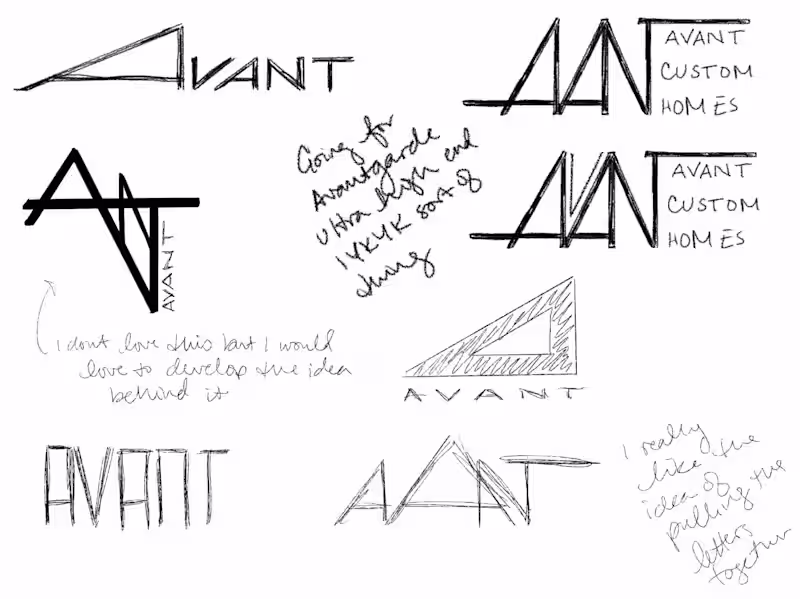 AVANT
AVANT
CUSTOM
HOMES
Going for
Avantgarde
ultra high end
IYKYK sort of
thing
AVANT
AVANT
CUSTOM
HOMES
I dont love this but I would
love to develop the idea
behind it
AVANT
AVANT
AANT
I really
like the
idea of
pulling the
letters
together